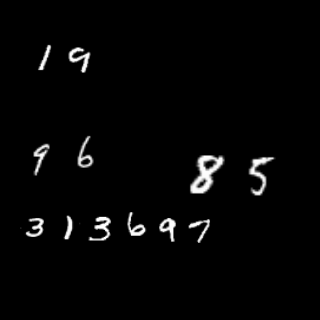 19
96
85
313697